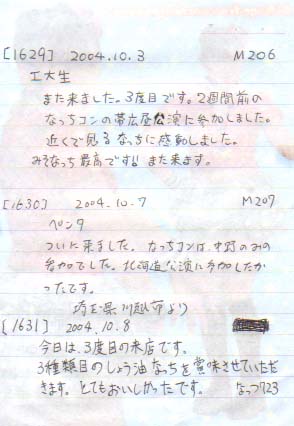 [1629] 2004.10.3 M206
工大生
また来ました。3度目です。2週間前の
なっちコンの帯広昼公演に参加しました。
近くで見るなっちに感動しました。
みそなっち最高です!! また来ます。
[1630] 2004.10.7 M207
ペンタ
ついに来ました。なっちコンは、中野のみの
参加でした。北海道公演に参加したか
ったです。
埼玉県川越市より
[1631] 2004.10.8
今日は、3度目の来店です。
3種類目のしょう油なっちを賞味させていただ
きます。とてもおいしかったです。 なっつ723